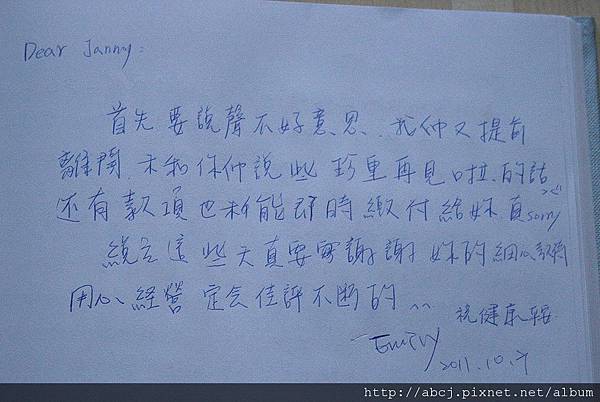 Dear Janny:
首先要說聲不好意思.我們又提前
離開.未和你們說些珍重再見啦.的話><
還有款項也未能即時繳付給妳真sorry
總之這些天真要實謝謝妳的細心
用心經營 定会佳評不断的^^ 祝健康平安
Emily
2011.10.7
http://abcj.pixnet.net/album